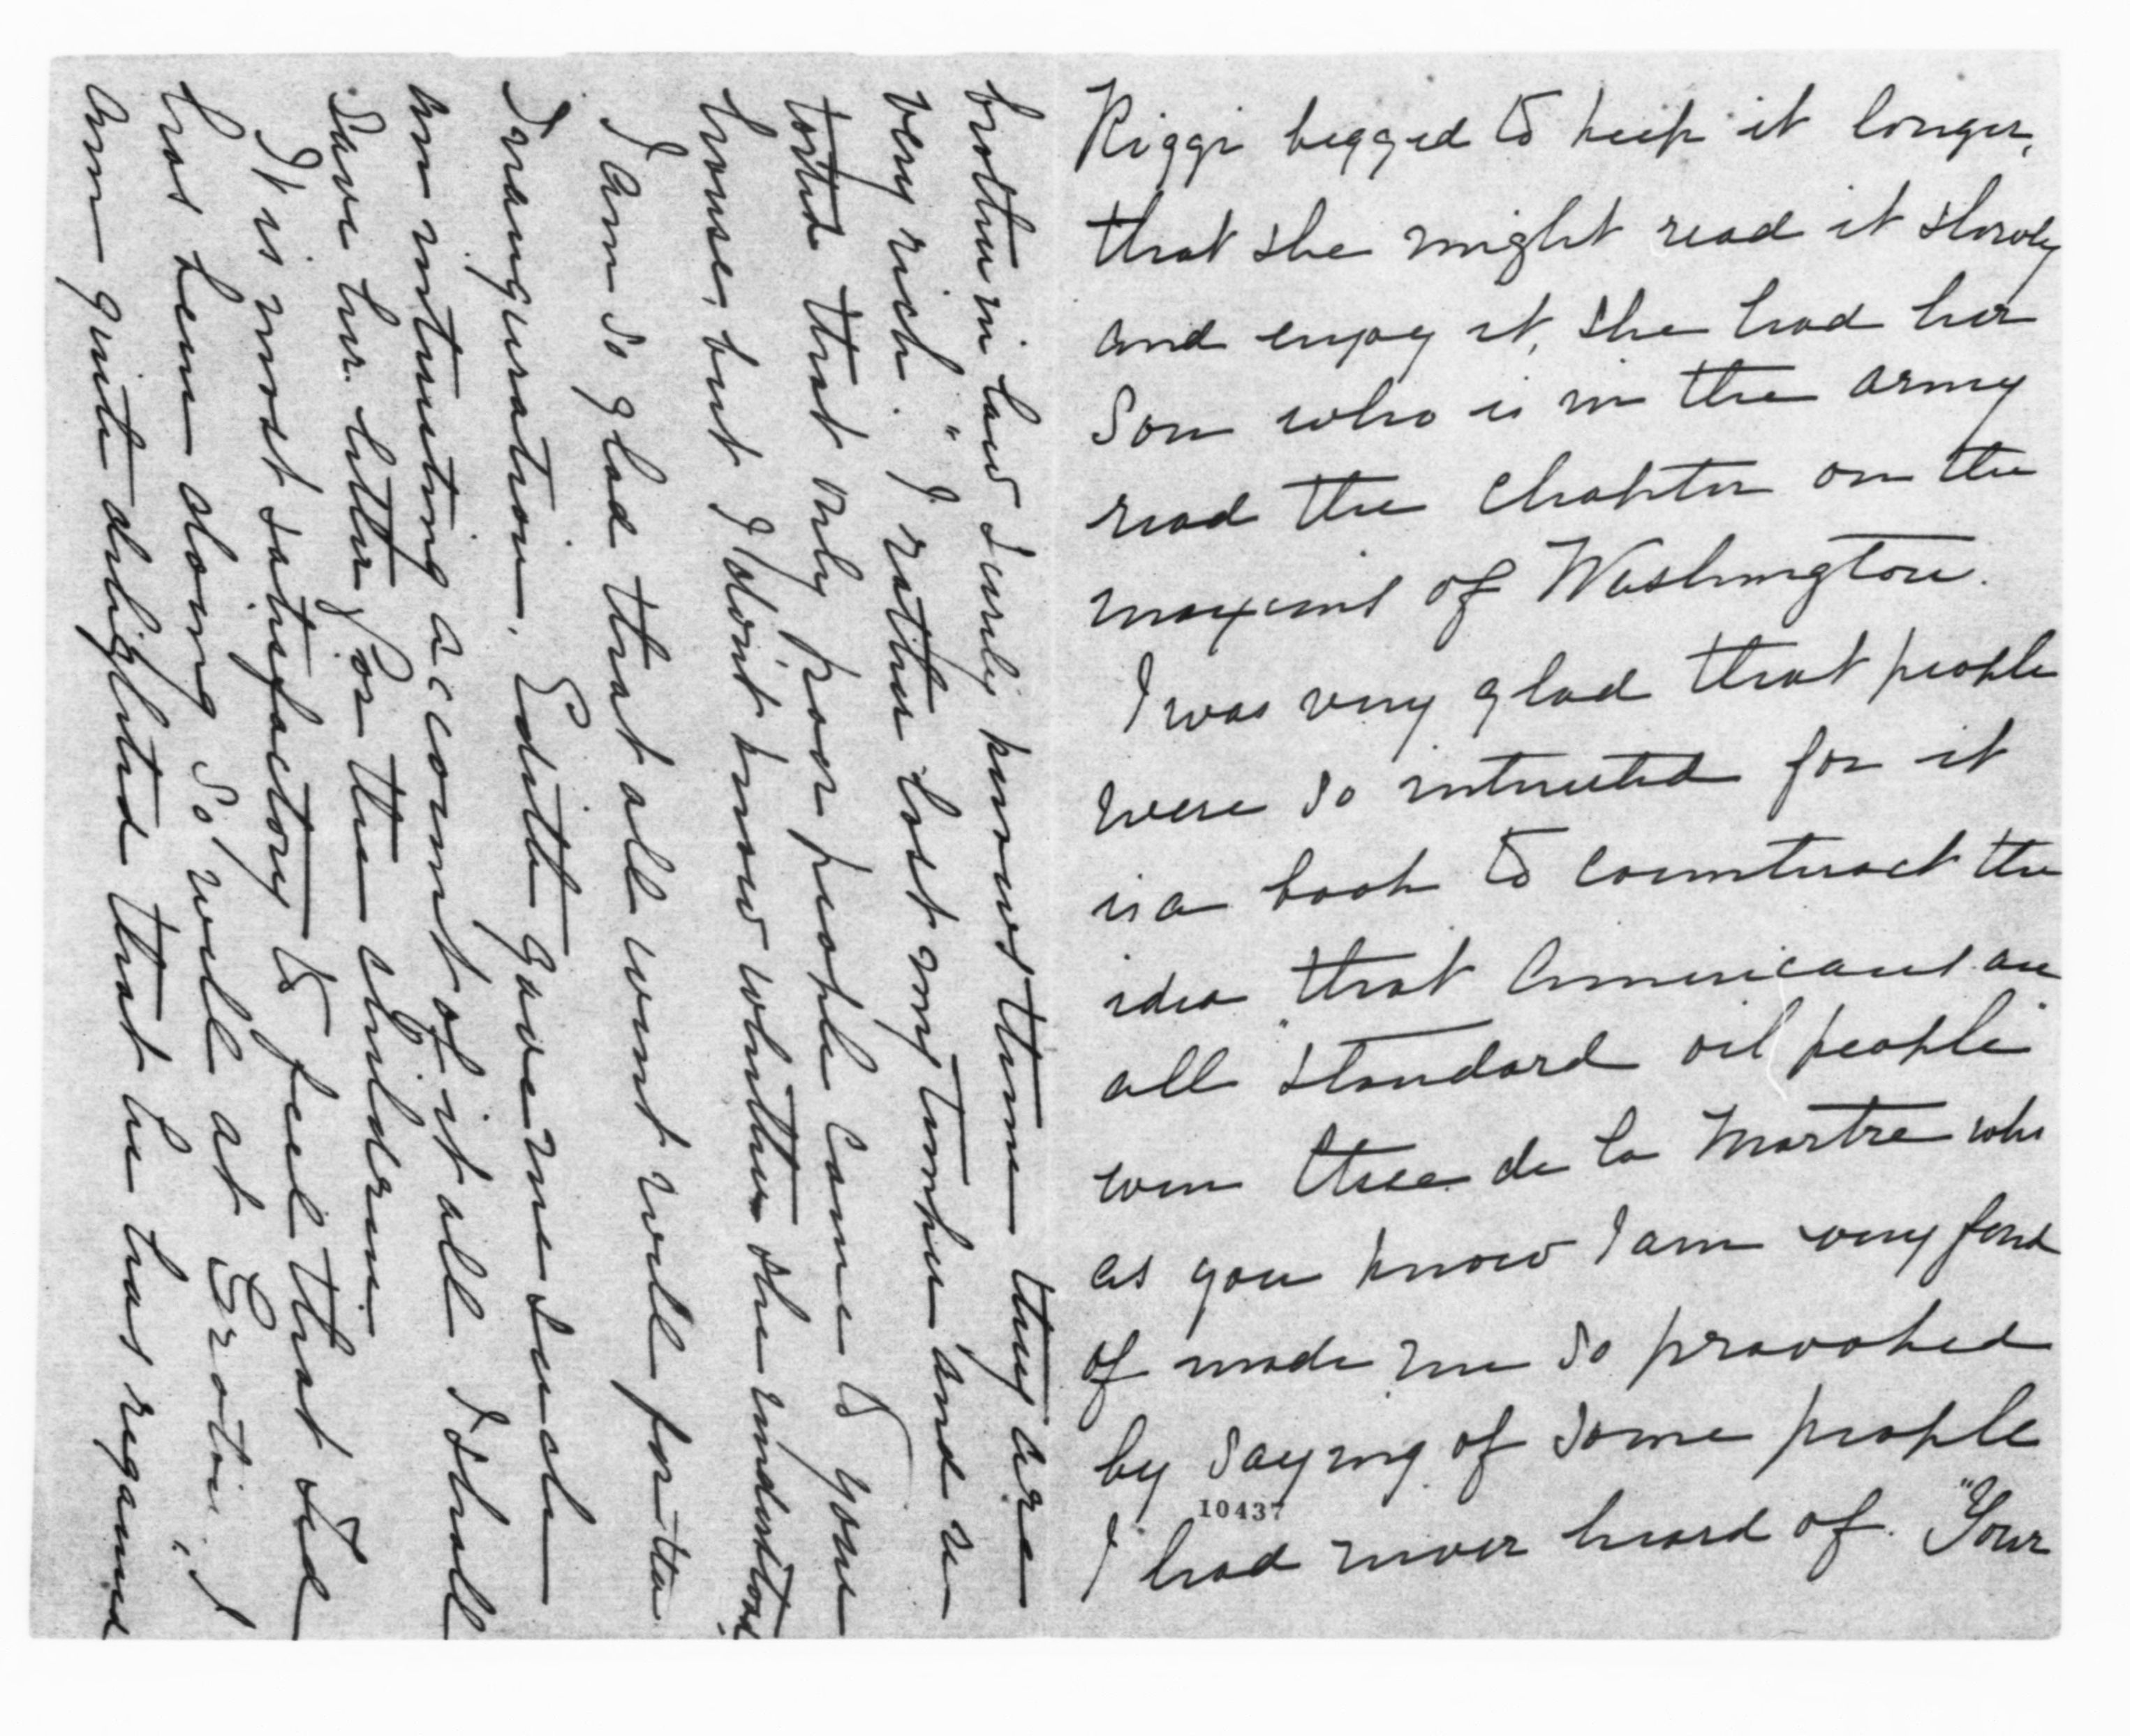 Riggi begged to keep it longer,
that she might read it slowly
and enjoy it, she had her
son who is in the army
read the chapter on the
maxims of Washington.
I was very glad that people
were so interested for it
is a book to counteract the
idea that Americans are
all "standard oil people"
even de la Martre who
as you know I am very fond
of made me so provoked
by saying of some people
I had never heard of. "Your
10437
brother in law surely knows them they are
very rich." I rather lost my temper and re
torted that only poor people came to your
house, but I don't know whether she understood
I am so glad that all went well for the
Inauguration. Edith gave me such
an interesting account of it all I shall
save her letter for the children.
It is most satisfactory to feel that Ted
has been doing so well at Groton, I
am quite delighted that he has regained